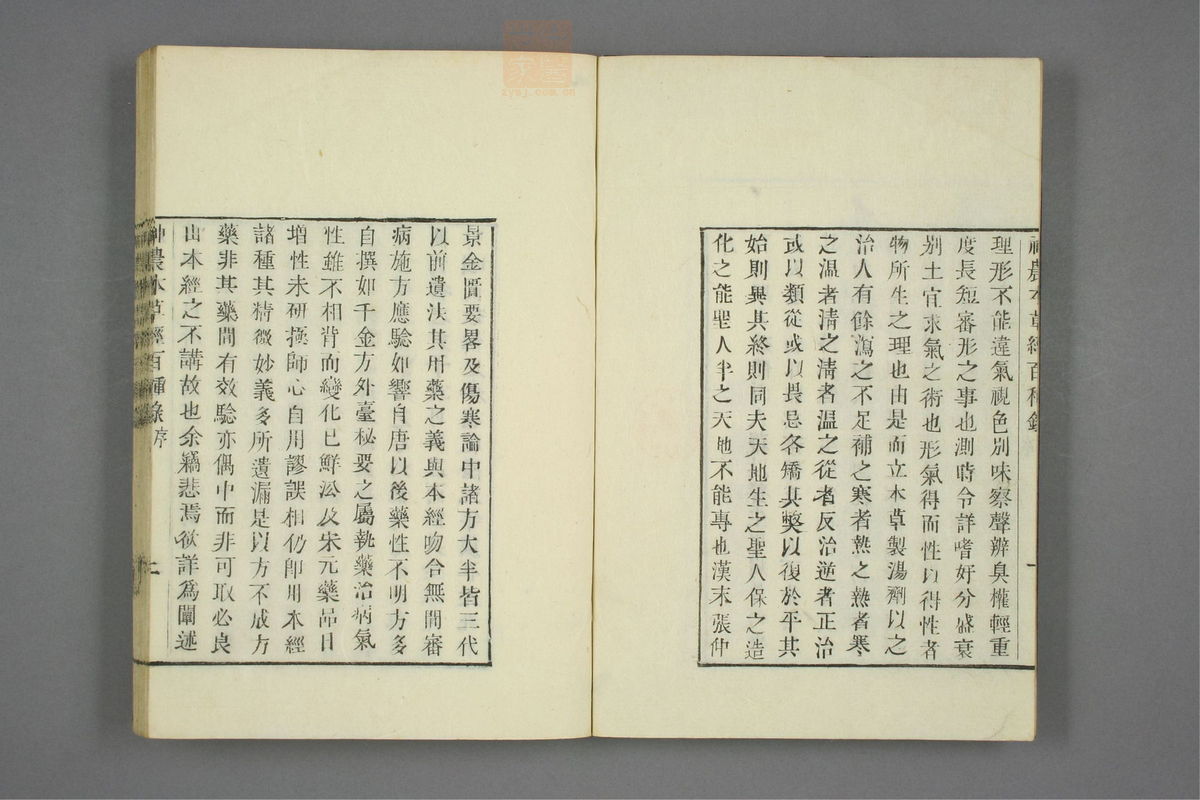 理形不能違氣視色別味察聲辨臭權輕重
度長短審形之事也測時令詳嗜好分盛衰
別土宜求氣之術也形氣得而性以得性者
物所生之理也由是而立本草製湯劑以之
治人有餘瀉之不足補之寒者熱之熱者寒
之温者清之清者温之從者反治逆者正治
或以類從或以畏忌各矯其弊以復於平其
始則異其終則同夫天地生之聖人保之造
化之能聖人半之天地不能專也漢末張仲
景金匱要畧及傷寒論中諸方大半皆三代
以前遺法其用藥之義與本經吻合無間審
病施方應驗如響自唐以後藥性不明方多
自撰如千金方外臺秘要之屬執藥治病氣
性雖不相背而變化已鮮沿及宋元藥品日
增性未研極師心自用謬誤相仍即用本經
諸種其精微妙義多所遺漏是以方不成方
藥非其藥間有效驗亦偶中而非可取必良
由本經之不講故也余竊悲焉欲詳爲闡述
神農本草經百種錄 序 二
zysj.com.cn